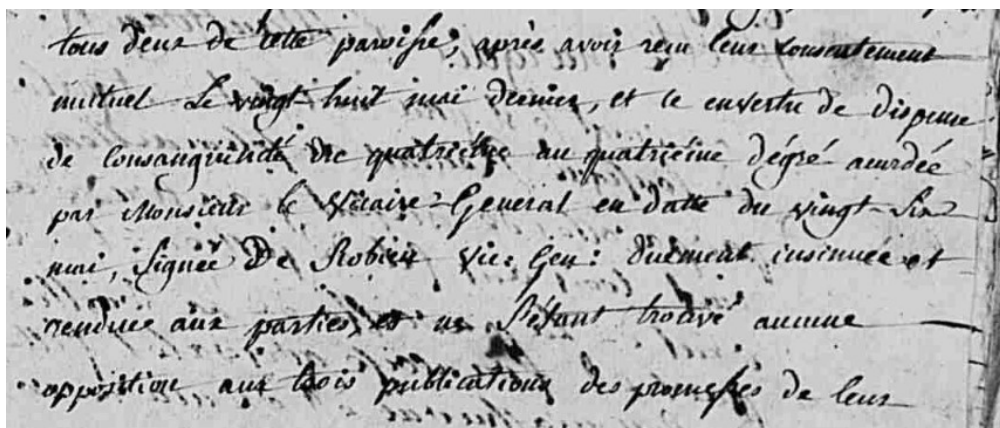 tous deux de cette paroisse, après avoir reçu leur consentement
mutuel le vingt-huit mai dernier, et ce envertu de dispense
de consanguinité du quatrième au quatrième dégré accordée
par Monsieur le Vicaire-General en datte du vingt-six
mai, signée De Robien Vic: Gen: duement insinuée et
rendue aux parties, et ne s'étant trouvé aucune
opposition aux trois publications des promesses de leur